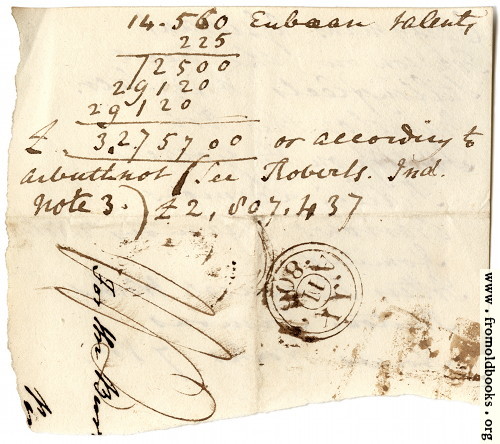 14.560 Eubœan talents
225
72500
29120
29120
£ 3,275700 or according to
Arbuthnot (See Roberts. Ind.
Note 3.) £2,807,437
For the
11
808
www.fromoldbooks.org